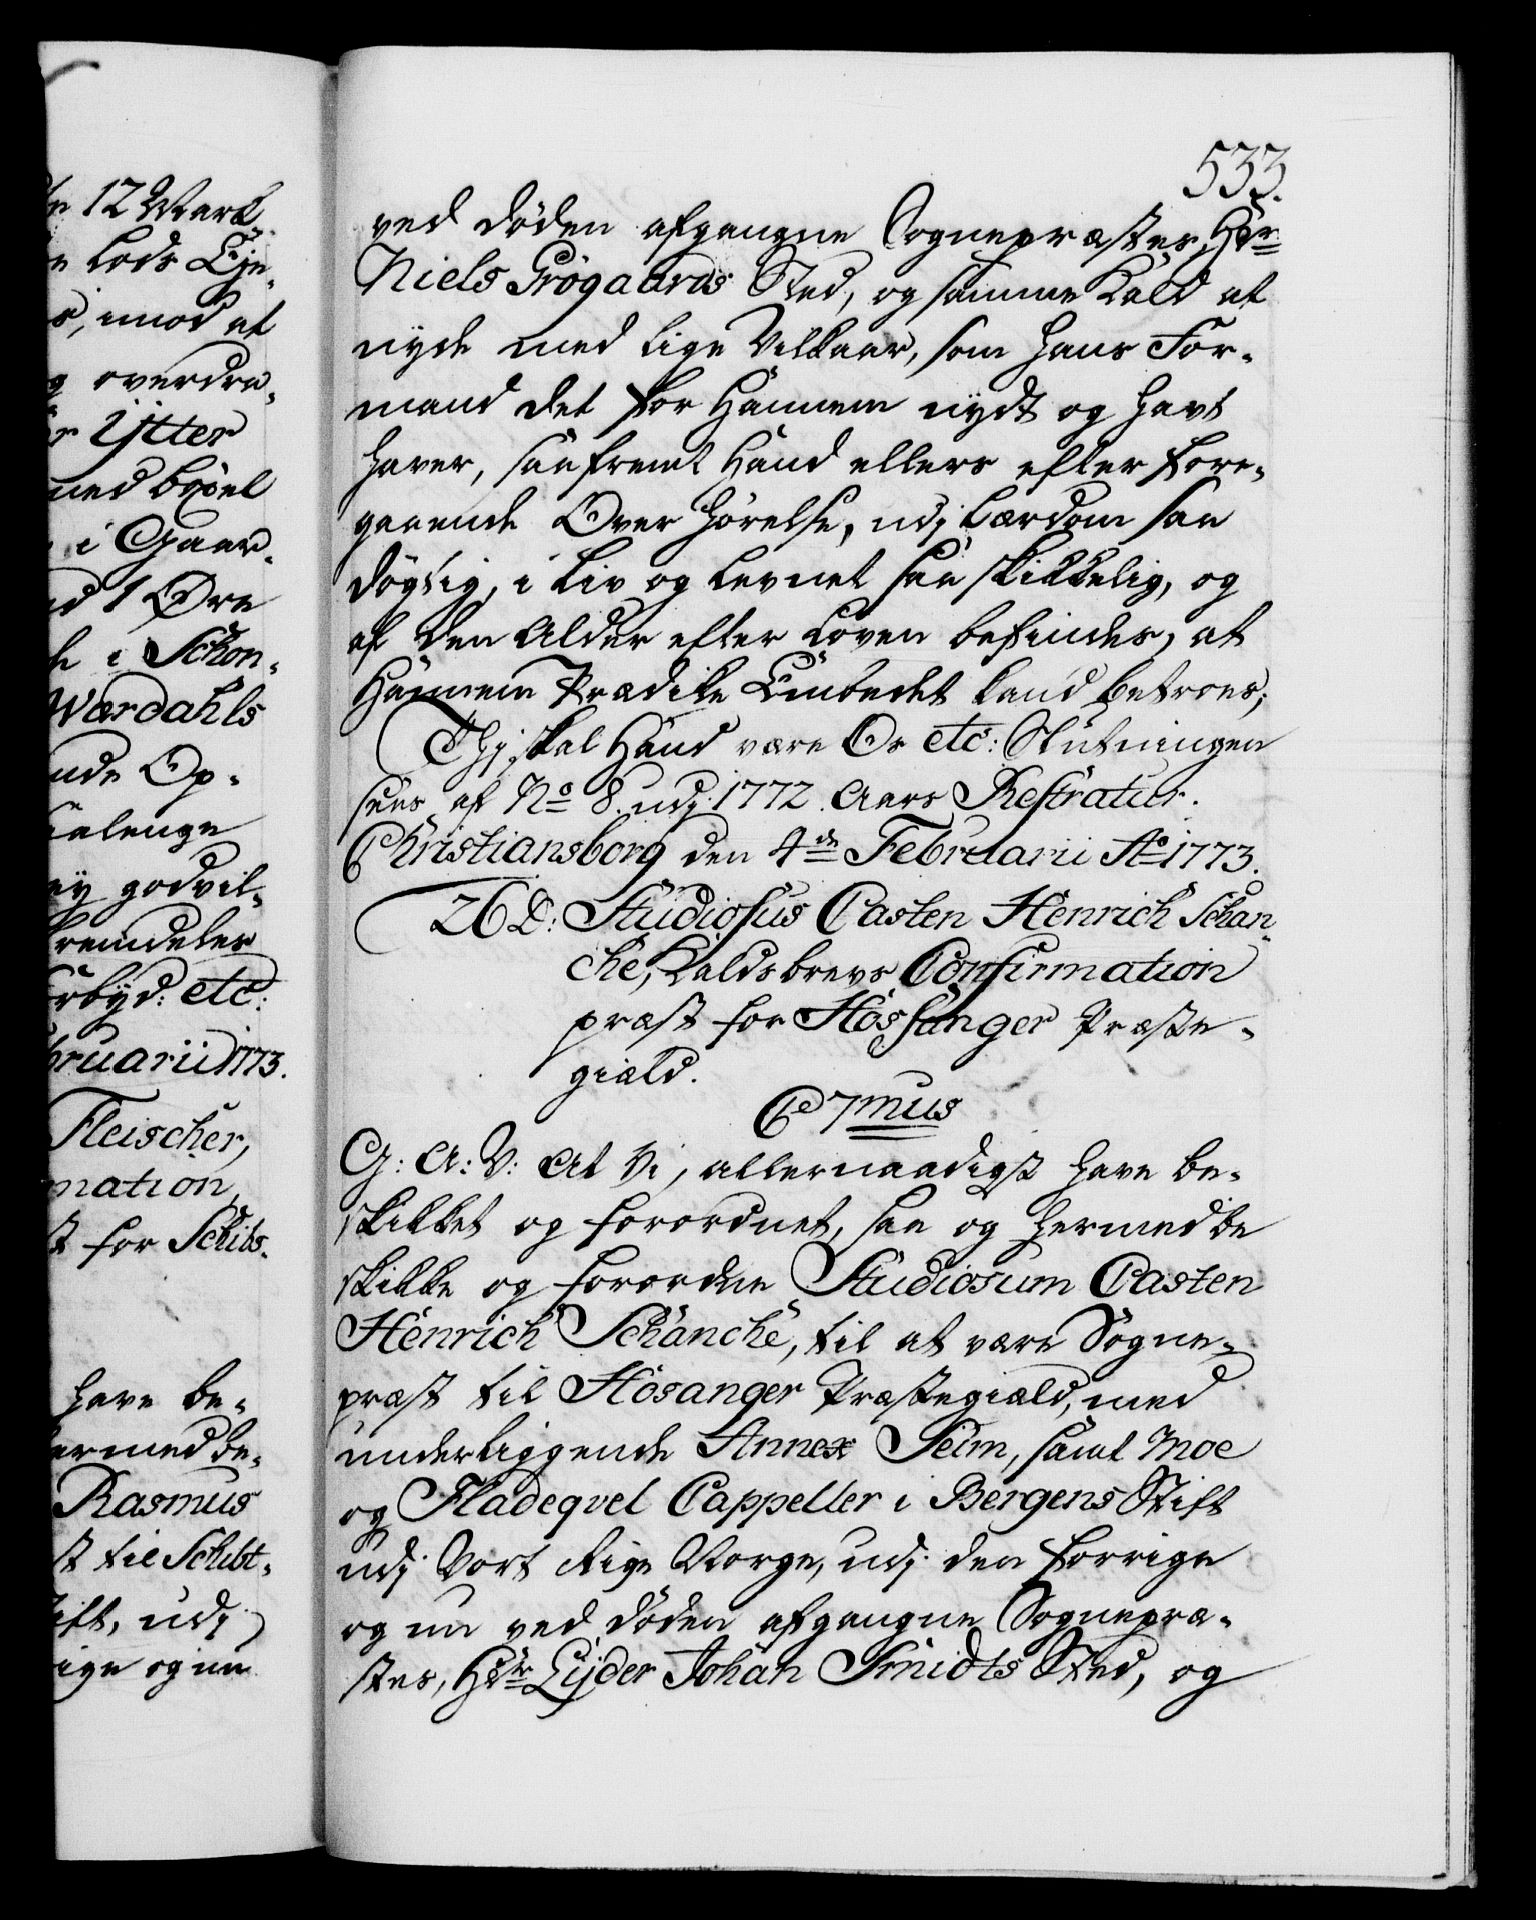 533.
ved Døden afgangne Sognepræstes, Hdr
Niels Grøgaards Sted, og samme Kald at
nyde med lige Velkaar, som hans For-
mand det for Hannem nydt og havt
haver, saafremt Hand ellers efter fore-
gaaende Over Hørelse, udj Lærdom saa
dygtig, i Liv og Levnet saa skikkelig, og
af den Alder efter Loven befindes, at
Hannem Prædike Embedet kand betroes;
Thj skal Hand være Os etc: Slutningen
sees af No 8. udj 1772 Aars Restratur.
Christiansborg den 4de Februarii Ao 1773.
26 D: Studiosus Casten Henrich Schan-
che, Kaldsbrevs Confirmation
præst for Hossanger Præste-
giæld.
C 7mus
G: A: V: At Vi, allernaadigst have be-
skikket og forordnet, saa og hermed be
skikke og forordne Studiosum Casten
Henrich Schanche, til at være Sogne-
præst til Hosanger Præstegiæld, med
underliggende Annex Seim, samt Moe
og Fladeqvel Cappeller i Bergens Stift
udj Vort Rige Norge, udj den forrige
og nu ved Døden afgangne Sognepræ-
stes, Hdr Lyder Johan Smidts Sted, og
12 Mark
Lods Eje-
, imod at
overdra-
Ytter
med bøxel
i Gaar-
1 Øre
i Schon-
Wærdahls
Op-
godvil-
fremdeles
etc:
bruarii 1773.
Fleischer,
mation,
for Schibs-
have be-
hermed be-
Rasmus
til Schibt-
Stift, udj
og nu